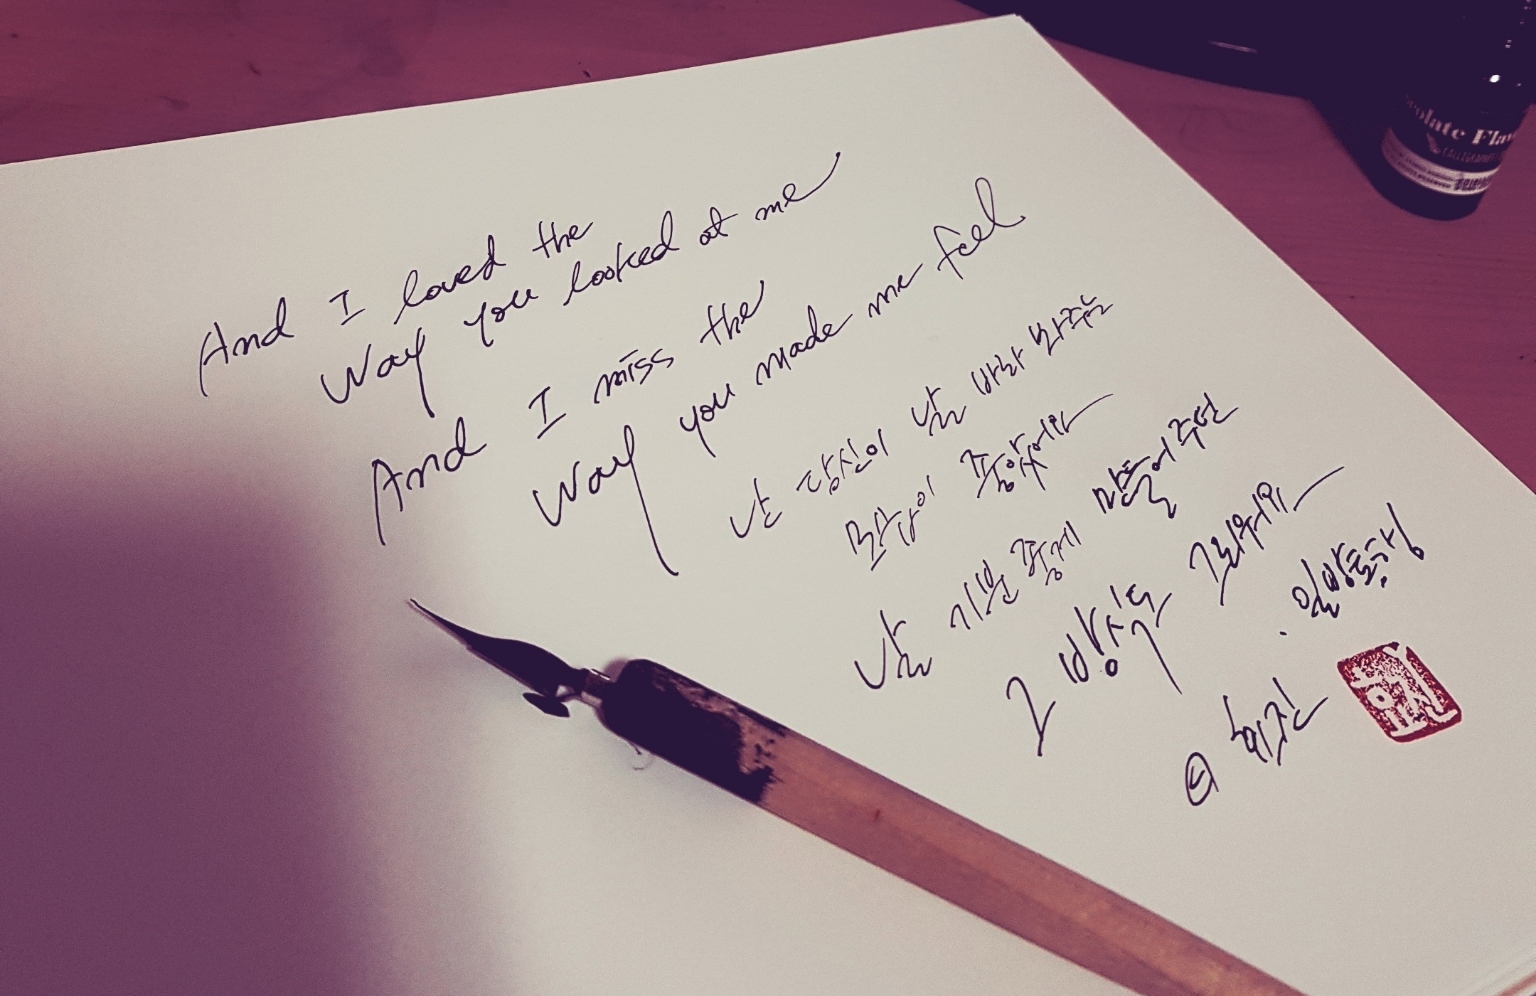 And I loved the
way you looked at me
And I miss the
way you made me feel
난 당신이 날 바라봐주는
모습이 좋았어와
날 기분 좋게 만들어주던
그 방식도 그리워와
colate Fla